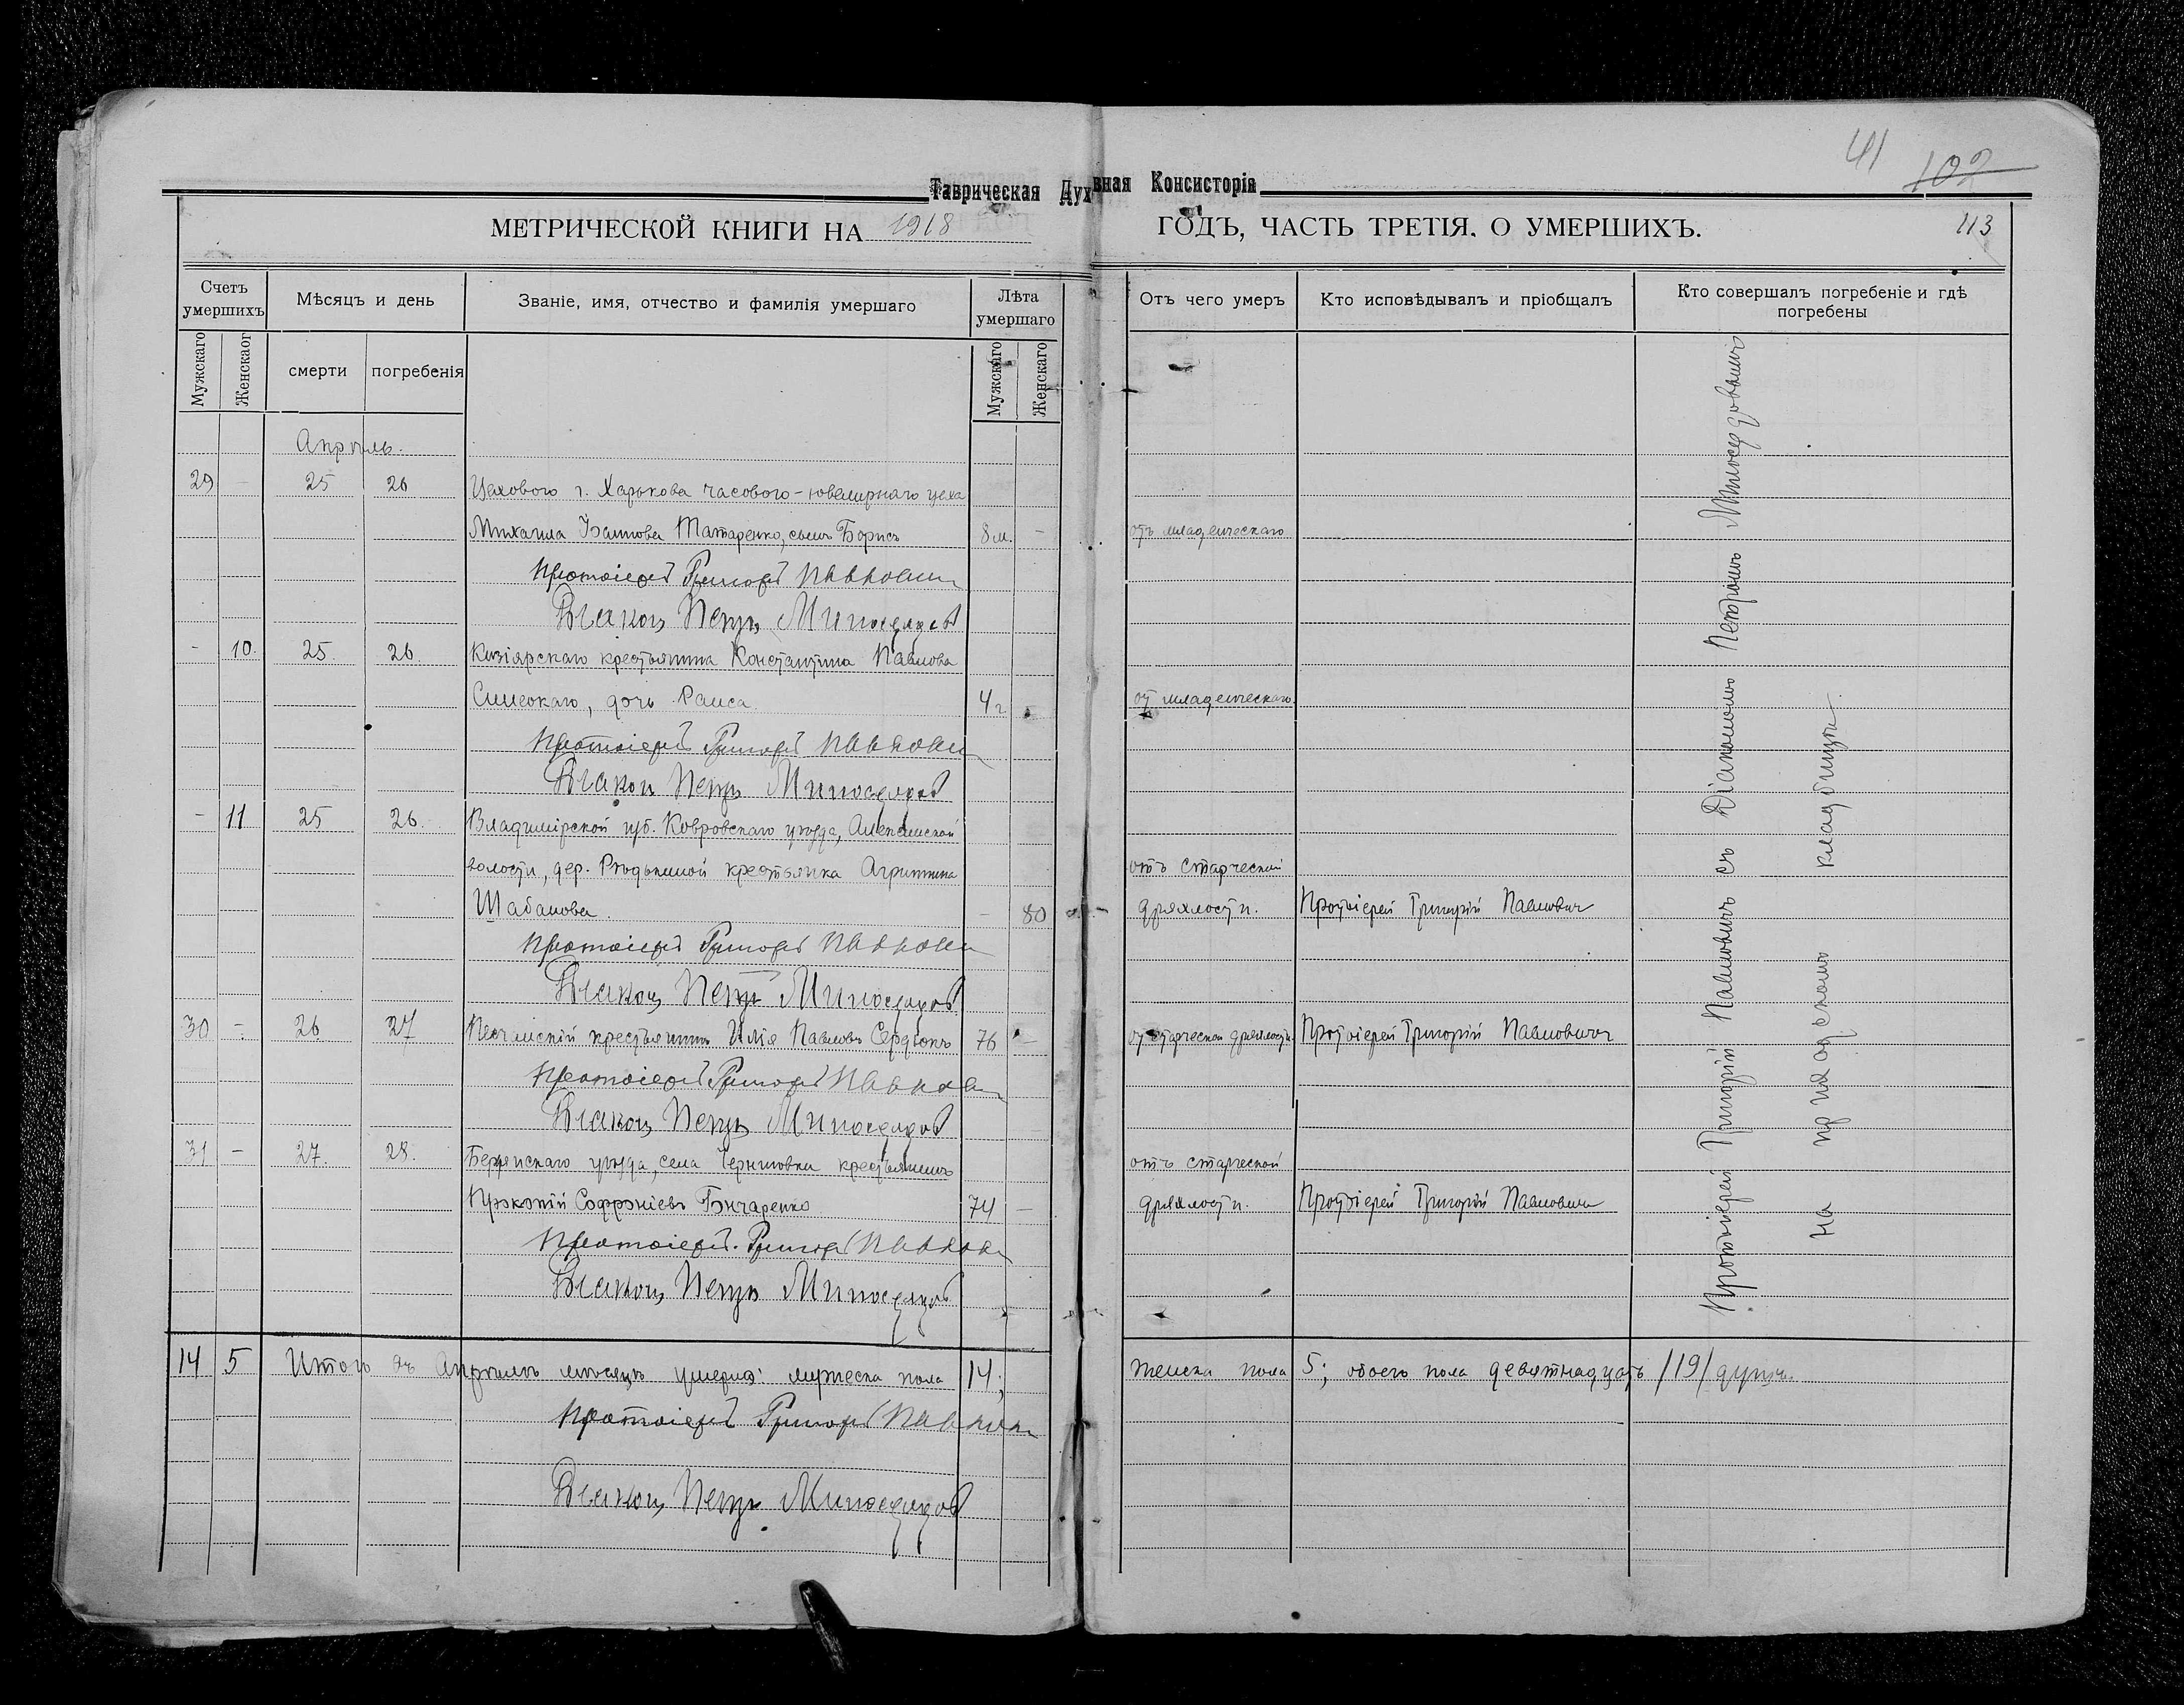 41 102
Таврическая Духовная Консисторія
МЕТРИЧЕСКОЙ КНИГИ НА 1918 ГОДЪ, ЧАСТЬ ТРЕТІЯ. О УМЕРШИХЪ. 113
Счетъ умершихъ
Мужскаго
Женскаог
Мѣсяцъ и день
смерти
погребенія
Званіе, имя, отчество и фамилія умершаго
Лѣта умершаго
Мужскаго
Женскаго
Отъ чего умеръ
Кто исповѣдывалъ и пріобщалъ
Кто совершалъ погребеніе и гдѣ погребены
Апрѣль.
29 - 25 26 Цехового г. Харькова часового-ювелирнаго цеха
Михаила Иванова Татаренко, сынъ Борисъ 8 м. - отъ младенческаго
Протоіерей Григорій Павлович
Діаконъ Петръ Милосердовъ
- 10. 25. 26. крестьянина Константина Павлова
дочь Раиса. 4 г. от младенческаго.
Протоіерей Григорій Павлович
Діаконъ Петръ Милосердовъ
- 11 25 26. Владимірской губ. Ковровскаго уѣзда,
волости, дер. крестьянка Агриппина отъ старческой
Шабанова. - 80 дряхлости. Протоіерей Григорій Павлович
Протоіерей Григорій Павлович
Діаконъ Петръ Милосердовъ
30 - 26 27 крестьянинъ Илія Павловъ Сердюкъ 76 - от старческой дряхлости. Протоіерей Григорій Павлович
Протоіерей Григорій Павлович
Діаконъ Петръ Милосердовъ
31 - 27. 28. Бердянскаго уѣзда, села Черниговки крестьянинъ отъ старческой
Прокопій Софроніевъ Гончаренко 74 - дряхлости. Протоіерей Григорій Павлович
Протоіерей Григорій Павлович
Діаконъ Петръ Милосердовъ
Протоіерей Григорій Павловичъ съ Діакономъ Петромъ Милосердовымъ
на приходскомъ кладбищѣ.
14 5 Итого въ Апрѣлѣ мѣсяцѣ умерло: мужеска пола 14; женска пола 5; обоего пола девятнадцать /19/ душъ.
Протоіерей Григорій Павлович
Діаконъ Петръ Милосердовъ